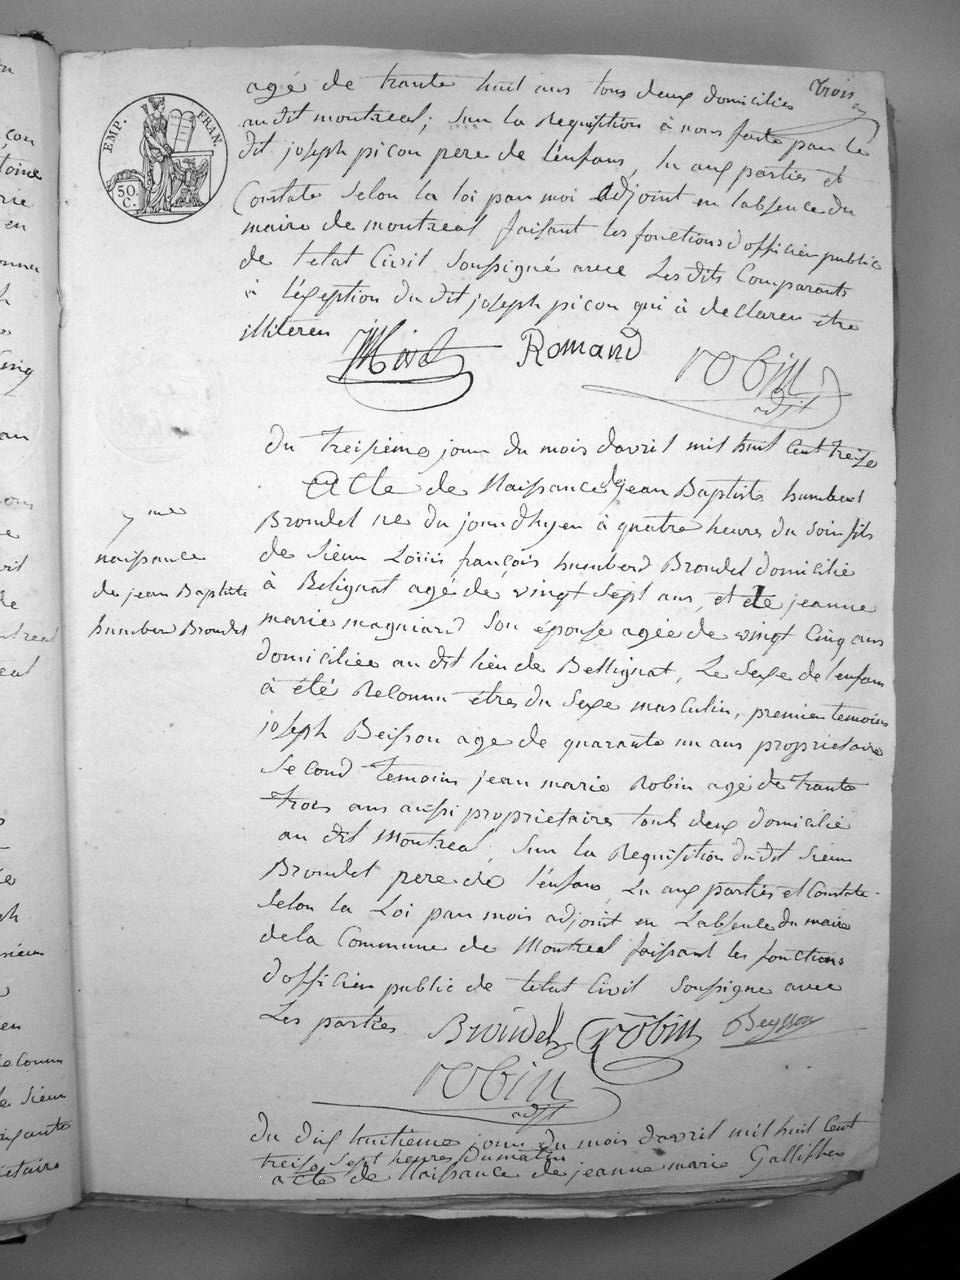 trois
agé de trante huit ans tous deux domiciliés
au dit montreal; sur la Requisition à nous faite par le
dit joseph picon pere de l'enfans, lu aux parties et
Constaté Selon la loi par moi adjoint en l'absence du
maire de montreal faisant les fonctions d'officier public
de l'etat Civil Soussigné avec Les dits Comparants
à l'exeption du dit joseph picon qui à declarer être
illiteren
Romand
robin
adjt
EMP. FRAN.
50. C.
du treisieme jour du mois d'avril mil huit Cent treise
Acte de Naissance de jean Baptiste humbert
Broudel né du jourd'hyer à quatre heures du soir fils
de Sieur Louis françois humberd Broudel domicilié
à Belignat agé de vingt Sept ans, et de jeanne
marie magniard Son épouse agée de vingt Cinq ans
domiciliée au dit lieu de Bellignat, Le Sexe de l'enfans
à été Reconnu êtres du Sexe masculin, premier temoins
joseph Beisson agé de quarante un ans proprietaire
Second temoins jean marie Robin agé de trante
trois ans aussi proprietaires tout deux domicilié
au dit Montreal, Sur la Requisition du dit Sieur
Broudel pere de l'enfans, Lu aux parties et Constaté
Selon la Loi par mois adjoint en L'absence du maire
de la Commune de Montreal faissant les fonctions
d'officier public de l'etat Civil Soussigne avec
Les parties
Broudel robin Beysson
robin
adjt
7 me
naissance
de jean Baptiste
humber Broudel
du dix huitieme jour du mois d'avril mil huit Cent
treise Sept heures du matin
acte de Naissance de jeanne marie